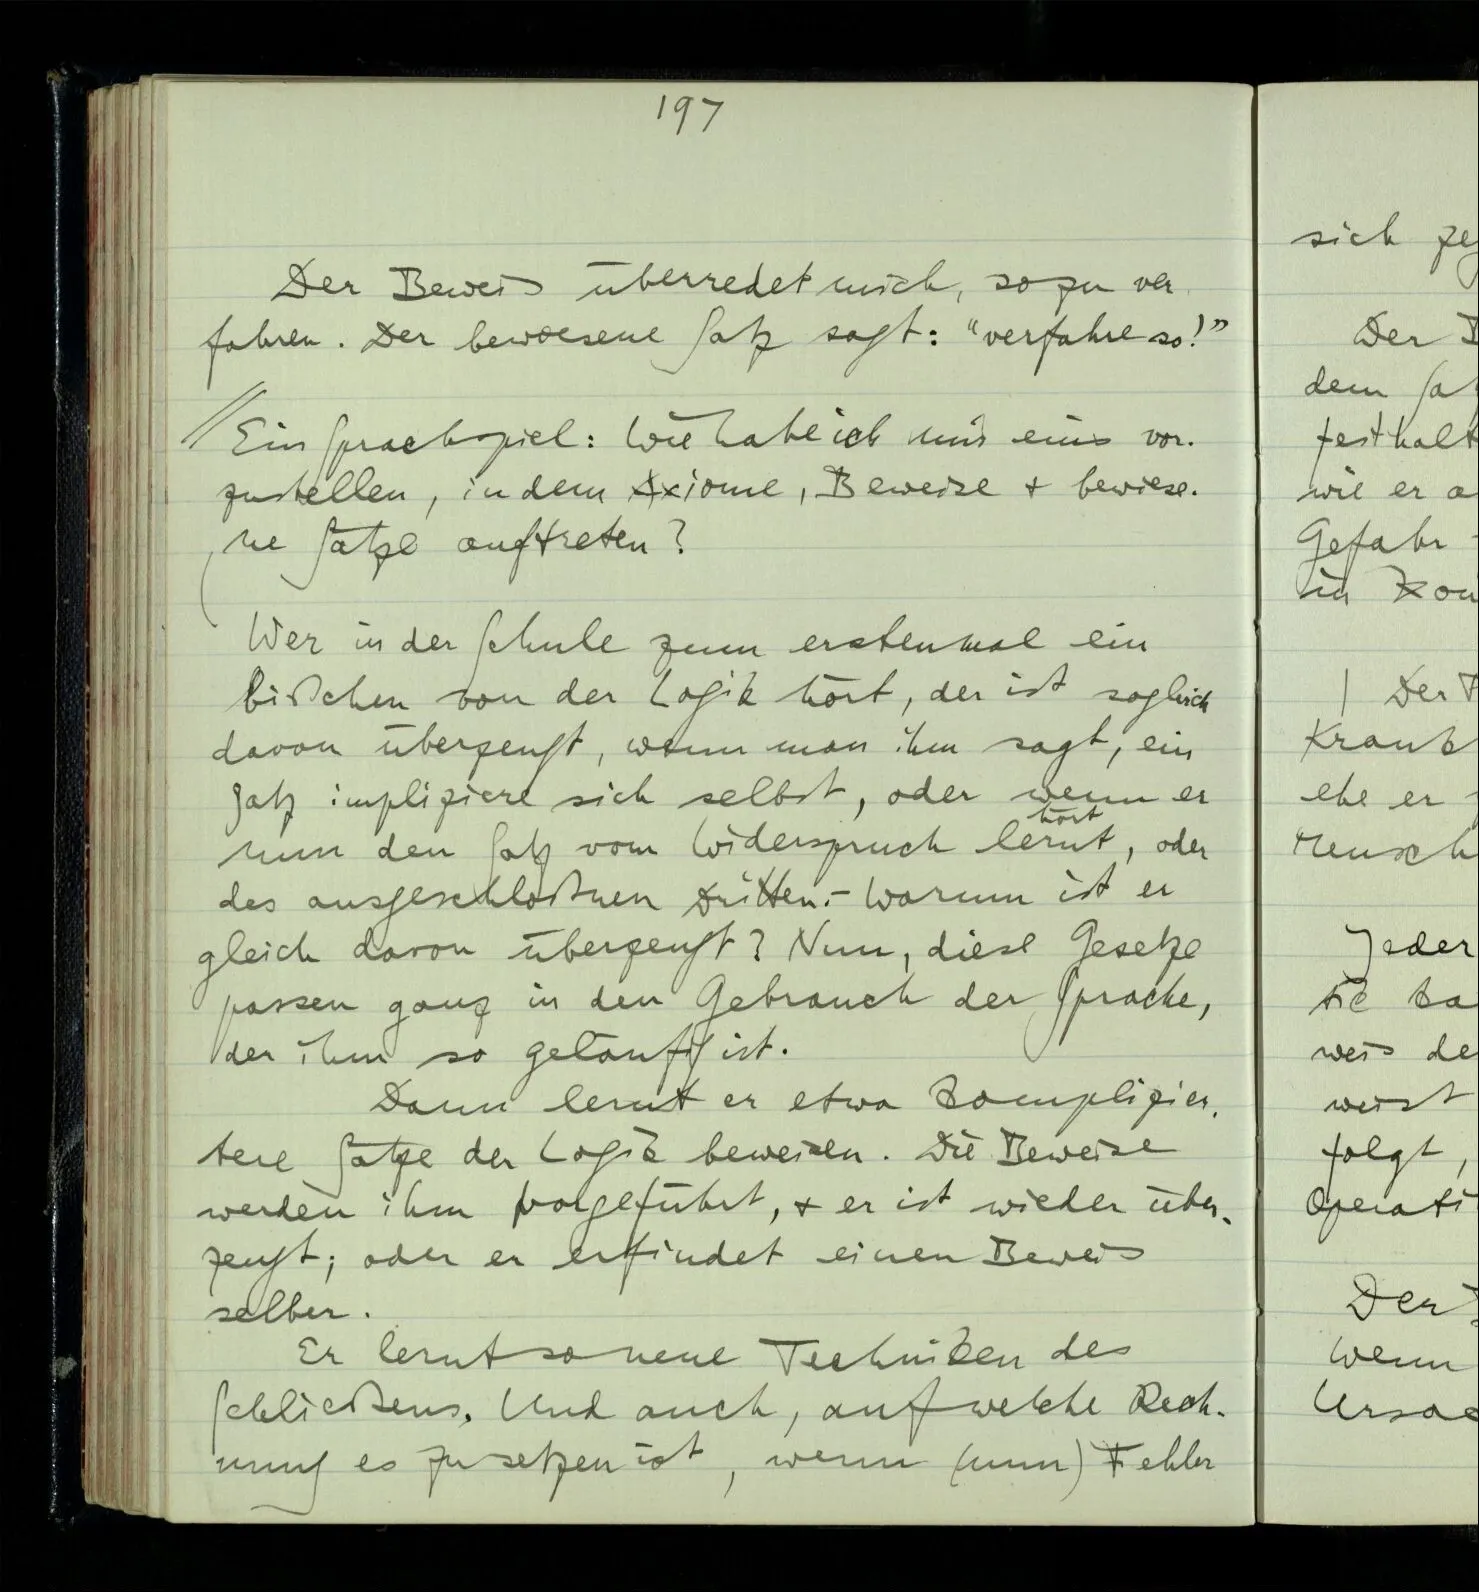 197
Der Beweis überredet mich, so zu ver-
fahren. Der bewiesene Satz sagt: "verfahre so!"
// Ein Sprachspiel: Wie habe ich mir eins vor-
zustellen, in dem Axiome, Beweise + bewiese-
ne Sätze auftreten?
Wer in der Schule zum erstenmal ein
bißchen von der Logik hört, der ist sogleich
davon überzeugt, wenn man ihm sagt, ein
Satz impliziere sich selbst, oder wenn er
hört
nun den Satz vom Widerspruch lernt, oder
des ausgeschloßnen Dritten. – Warum ist er
gleich davon überzeugt? Nun, diese Gesetze
passen ganz in den Gebrauch der Sprache,
der ihm so geläufig ist.
Dann lernt er etwa komplizier-
tere Sätze der Logik beweisen. Die Beweise
werden ihm vorgeführt, + er ist wieder über-
zeugt; oder er erfindet einen Beweis
selber.
Er lernt so neue Techniken des
Schließens. Und auch, auf welche Rech-
nung es zu setzen ist, wenn (nun) Fehler
sich
Der
dem
wie er
Gefahr
in
| Der
ehe er
Mensch
Jeder
folgt,
Der
Wenn